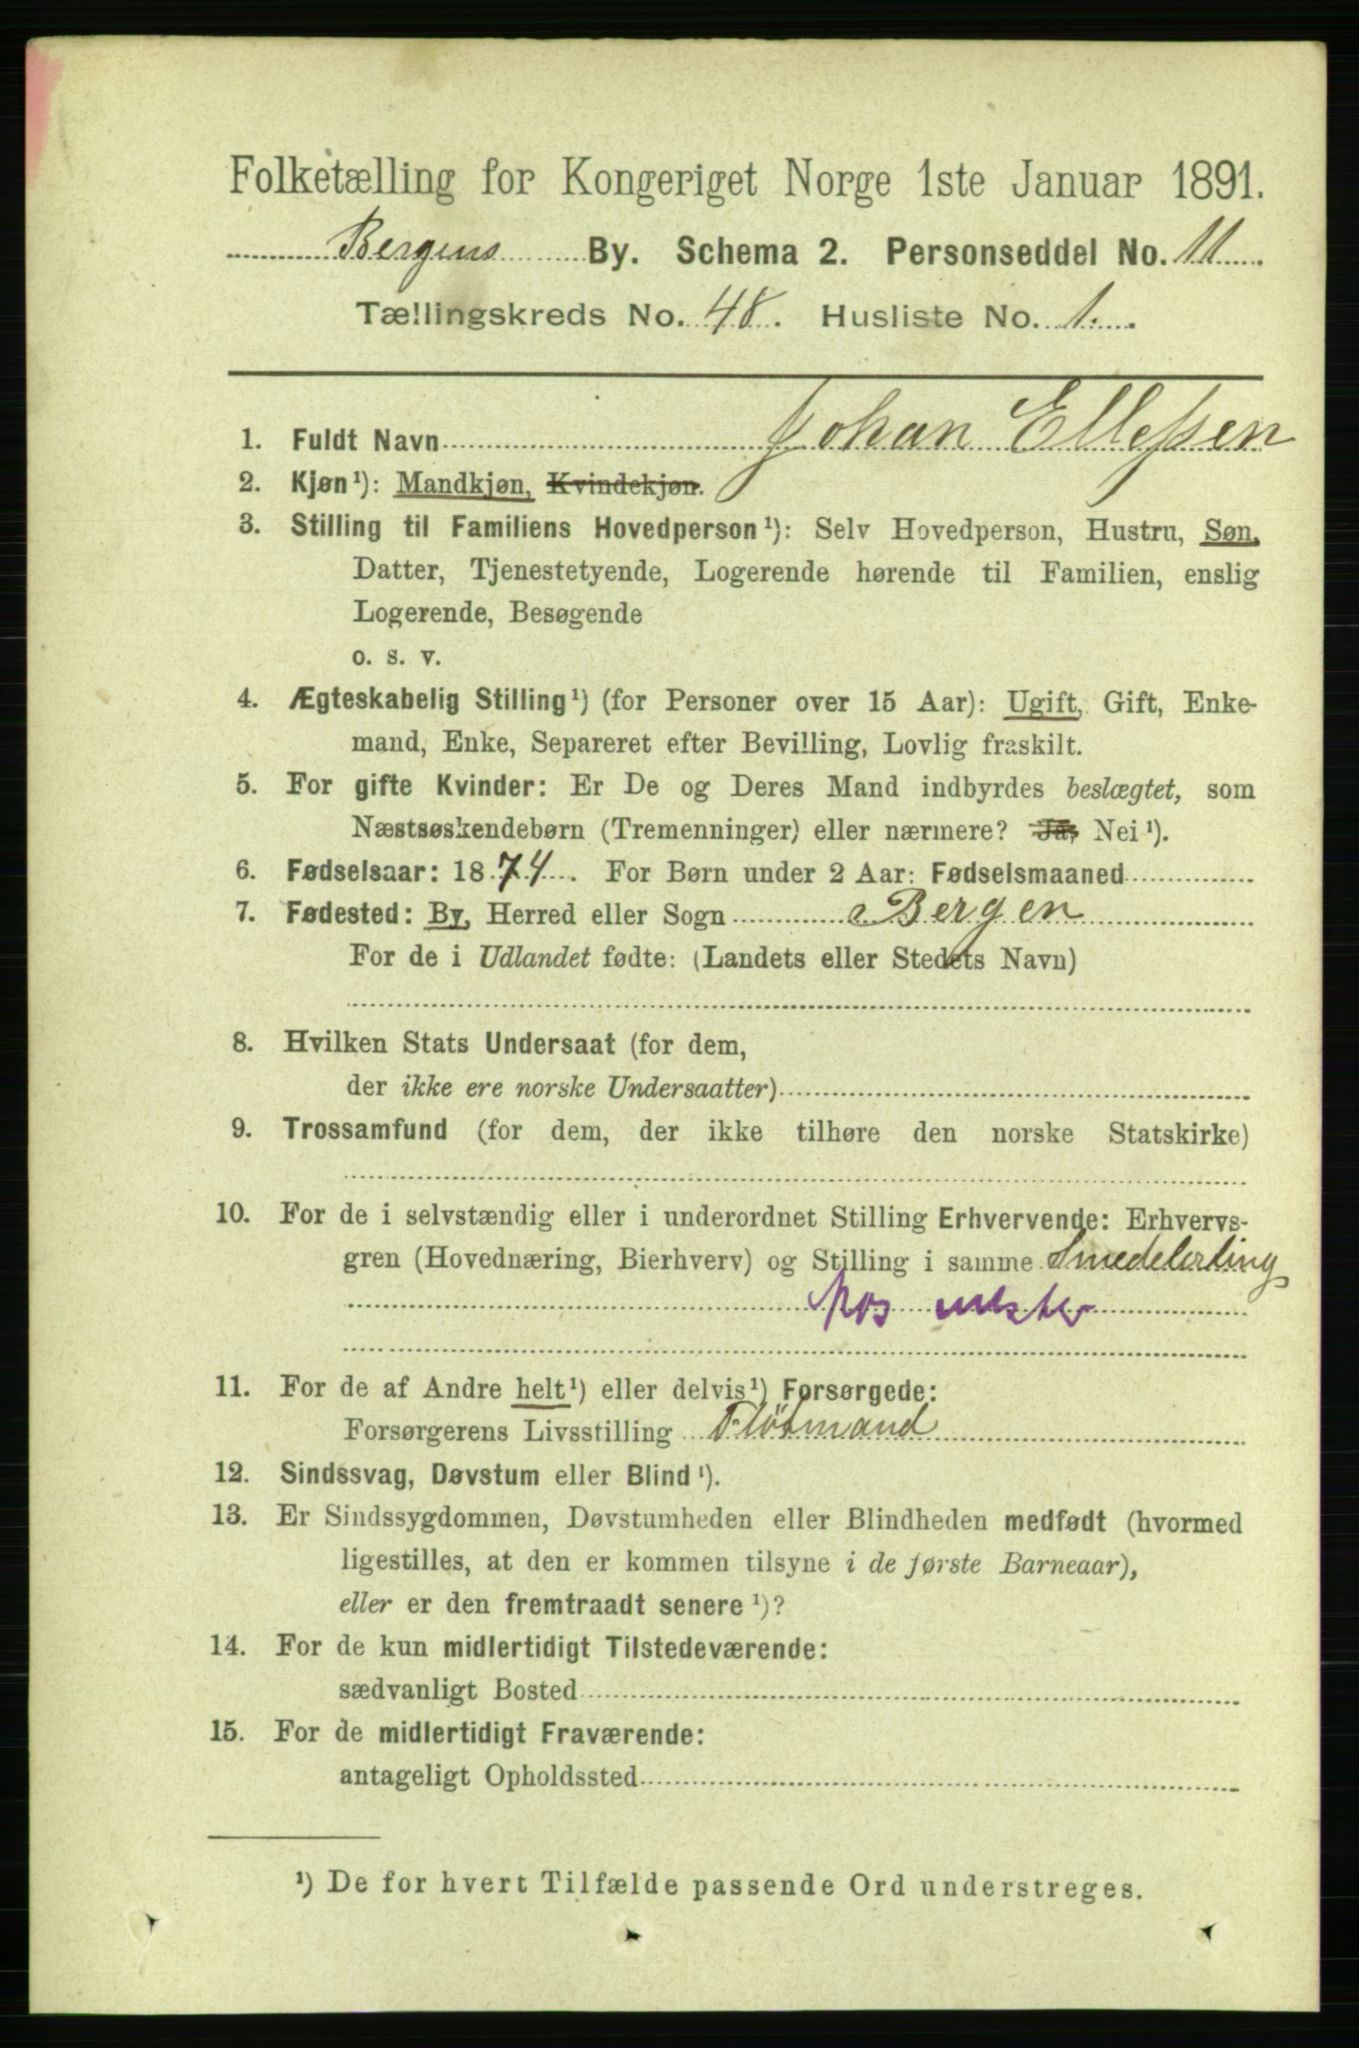 Folketælling for Kongeriget Norge 1ste Januar 1891.
Bergens By. Schema 2. Personseddel No. 11
Tællingskreds No. 48. Husliste No. 1.
1. Fuldt Navn Johan Ellefsen
2. Kjøn¹): Mandkjøn, Kvindekjøn.
3. Stilling til Familiens Hovedperson¹): Selv Hovedperson, Hustru, Søn,
Datter, Tjenestetyende, Logerende hørende til Familien, enslig
Logerende, Besøgende
o. s. v.
4. Ægteskabelig Stilling¹) (for Personer over 15 Aar): Ugift, Gift, Enke-
mand, Enke, Separeret efter Bevilling, Lovlig fraskilt.
5. For gifte Kvinder: Er De og Deres Mand indbyrdes beslægtet, som
Næstsøskendebørn (Tremenninger) eller nærmere? Ja, Nei¹).
6. Fødselsaar: 1874. For Børn under 2 Aar: Fødselsmaaned
7. Fødested: By, Herred eller Sogn Bergen
For de i Udlandet fødte: (Landets eller Stedets Navn)
8. Hvilken Stats Undersaat (for dem,
der ikke ere norske Undersaatter)
9. Trossamfund (for dem, der ikke tilhøre den norske Statskirke)
10. For de i selvstændig eller i underordnet Stilling Erhvervende: Erhvervs-
gren (Hovednæring, Bierhverv) og Stilling i samme Smedelærling
hos mester
11. For de af Andre helt¹) eller delvis¹) Forsørgede:
Forsørgerens Livsstilling Flötmand
12. Sindssvag, Døvstum eller Blind¹).
13. Er Sindssygdommen, Døvstumheden eller Blindheden medfødt (hvormed
ligestilles, at den er kommen tilsyne i de første Barneaar),
eller er den fremtraadt senere¹)?
14. For de kun midlertidigt Tilstedeværende:
sædvanligt Bosted
15. For de midlertidigt Fraværende:
antageligt Opholdssted
¹) De for hvert Tilfælde passende Ord understreges.